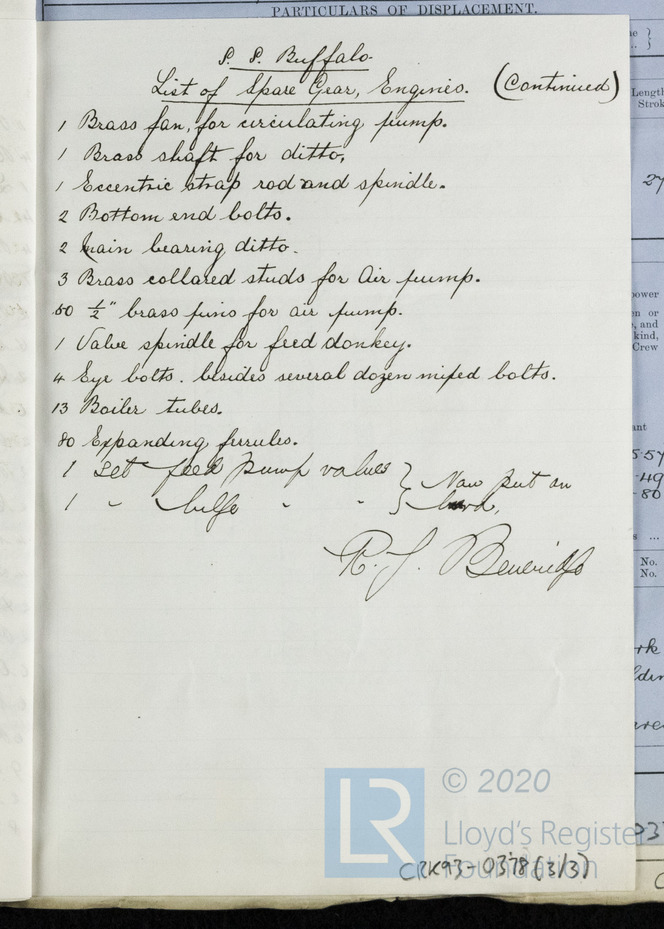 PARTICULARS OF DISPLACEMENT.
S. S. Buffalo
List of Spare Gear, Engines. (Continued)
1 Brass fan, for circulating pump.
1 Brass shaft for ditto,
1 Eccentric strap rod and spindle.
2 Bottom end bolts.
2 Main bearing ditto.
3 Brass collared studs for Air pump.
50 1/2" brass pins for air pump.
1 Valve spindle for feed donkey.
4 Eye bolts. besides several dozen mixed bolts.
13 Boiler tubes.
80 Expanding ferrules.
1 set feed pump valves } Now put on
1 " bilge " " } board,
R. J. Beveridge
© 2020
LR
Lloyd's Register
Foundation
CRK93-0378 (3/3)
Length
Strok
27
power
en or
, and
kind,
Crew
No.
No.